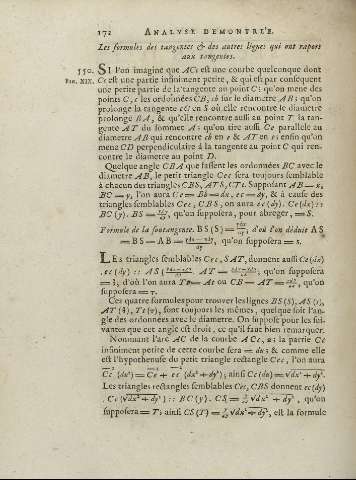 172 ANALYSE DEMONTRÉE.
Les formules des tangentes & des autres lignes qui ont raport
aux tangentes.
550. SI l'on imagine que ACc est une courbe quelconque dont
FIG. XIX. Cc est une partie infiniment petite, & qui est par consequent
une petite partie de la tangente au point C; qu'on mene des
points C, c les ordonnées CB, cb sur le diametre AB; qu'on
prolonge la tangente cC en S où elle rencontre le diametre
prolongé BA, & qu'elle rencontre aussi au point T la tan-
gente AT du sommet A; qu'on tire aussi Ce parallele au
diametre AB qui rencontre cb en e & AT en enfin qu'on
mene CD perpendiculaire à la tangente au point C qui ren-
contre le diametre au point D.
Quelque angle CBA que fassent les ordonnées BC avec le
diametre AB, le petit triangle Cec sera toujours semblable
à chacun des triangles CBS, ATS, Supposant AB = x,
BC = y, l'on aura Ce = Bb = dx, ec = dy, & à cause des
triangles semblables Cec, CBS, on aura ec (dy). Ce (dx) ::
BC (y). BS = qu'on supposera, pour abreger, = S.
Formule de la soutangente. BS (S) = d'où l'on déduit AS
= BS — AB = qu'on supposera = s.
LEs triangles semblables Cec, SAT, donnent aussi Ce (dx)
. ec (dy) :: AS AT = qu'on supposera
d'où l'on aura ou CB — AT = qu'on
supposera
Ces quatre formules pour trouver les lignes BS (S), AS (s),
AT sont toujours les mêmes, quelque soit l'an-
gle des ordonnées avec le diametre. On suppose pour les sui-
vantes que cet angle est droit, ce qu'il faut bien remarquer.
Nommant l'arc AC de la courbe ACc, u; la partie Cc
infiniment petite de cette courbe sera = du; & comme elle
est l'hypothenuse du petit triangle rectangle Cec, l'on aura
Cc² (du²) = Ce² + ec² (dx² + dy²); ainsi Cc (du) = √dx² + dy².
Les triangles rectangles semblables Cec, CBS donnent ec (dy)
. Cc (√dx² + dy²) :: BC (y). CS = y/dy √dx² + dy², qu'on
supposera = T; ainsi CS (T) = y/dy √dx² + dy², est la formule